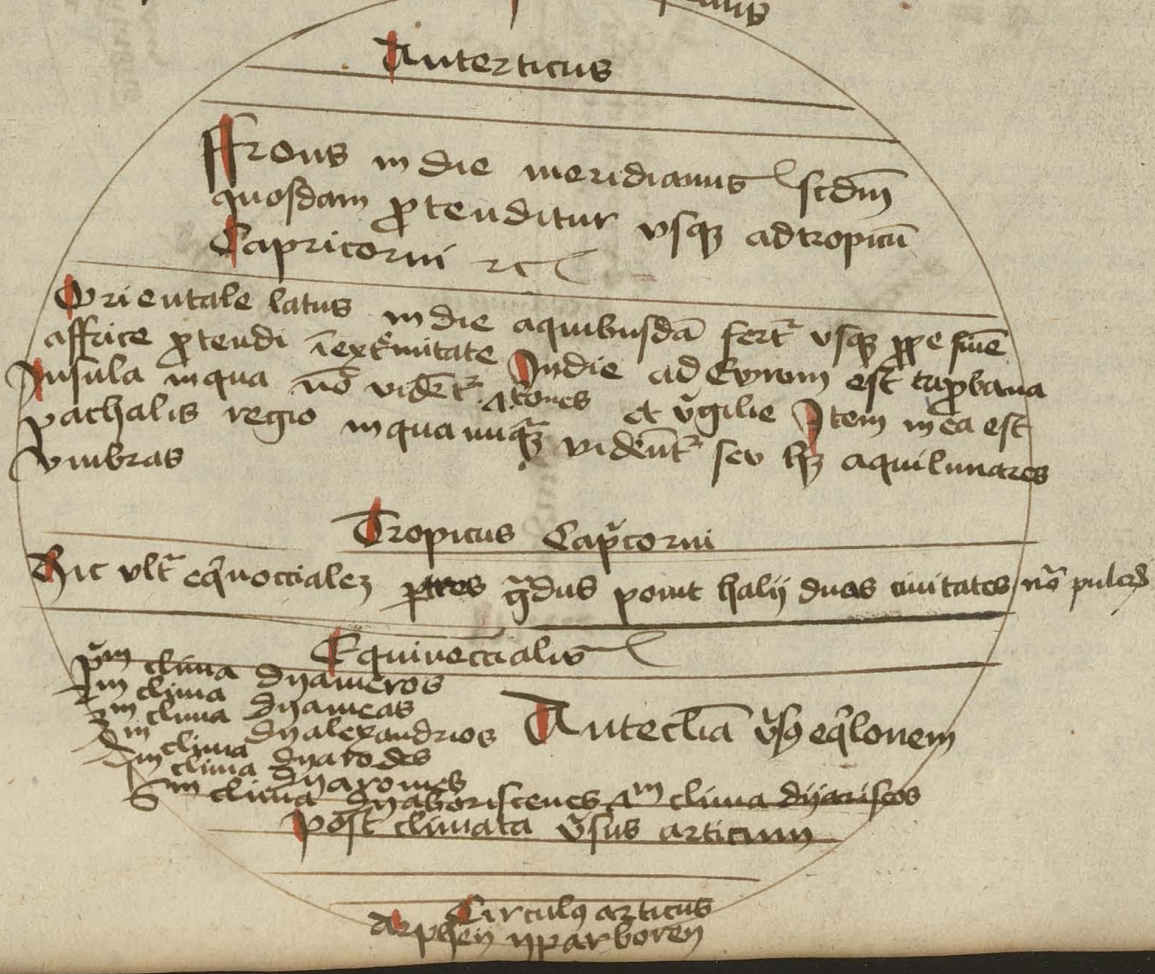 Anterticus
Frons indie meridianus scdm̄
quosdam ꝓtenditur vsqꝫ ad tropicū
Capricorni ⁊c
Orientale latus indie a quibusdā fert᷑ vsqꝫ ꝓpe finē
affrice ꝓtendi ī ext᷑mitate Indie ad Eurum est taprbana
Insula in qua nō vident᷑ et v᷑gilie Item in ea est
pathalis regio in qua nūqꝫ vident᷑ seu aquilunares
vmbras
Tropicus Cap͛corni
Hic vlt᷑ eq̄noccialeꝫ ꝑ tres g͛dus ponit halij duas ciuitates nō
Equinoccialis
p͛m clima dyameros
2m clima dyameas
3m clima dyalexandrios Anteclīa v᷑sꝰ eq̄lonem
4m clima dyarodes
5m clima dyaromes
6m clima dyaboriscenes 7m clima dyarifeos
post climata v᷑sus articum
Circulꝰ articus